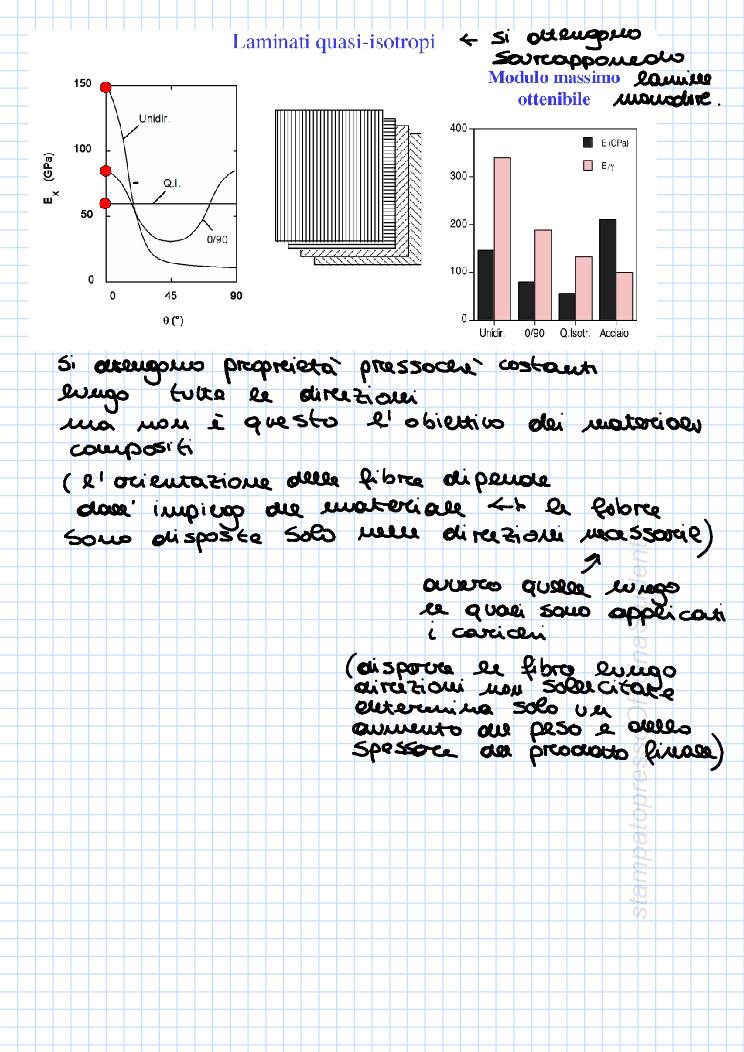 Laminati quasi-isotropi ← si ottengono
sovrapponendo
Modulo massimo lamine
ottenibile monodire.
150
100
50
0
E x (GPa)
Unidir.
Q.I.
0/90
0 45 90
θ (°)
400
300
200
100
0
E (GPa)
E/γ
Unidir. 0/90 Q.Isotr. Acciaio
si ottengono proprietà pressoché costanti
lungo tutte le direzioni
ma non è questo l'obiettivo dei materiali
compositi
(l'orientazione delle fibre dipende
dall'impiego del materiale ↔ le fibre
sono disposte solo nelle direzioni necessarie)
ovvero quelle lungo
le quali sono applicati
i carichi
(disporre le fibre lungo
direzioni non sollecitate
determina solo un
aumento del peso e dello
spessore del prodotto finale)